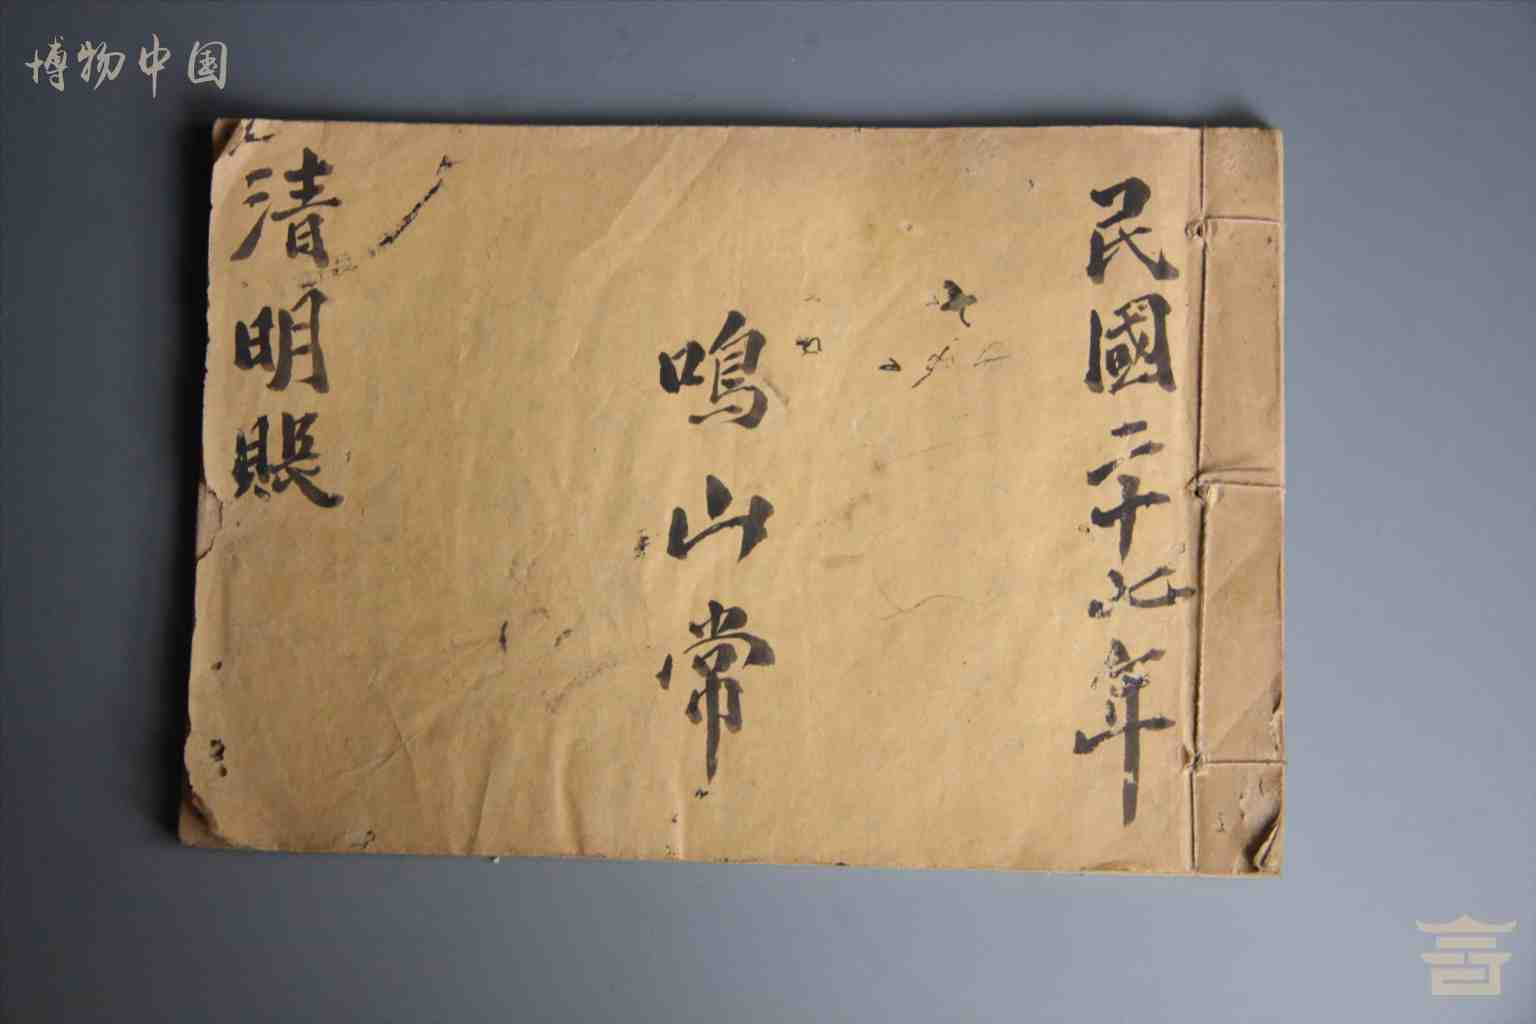 博物中国
民國二十七年
鳴山常
清明賬